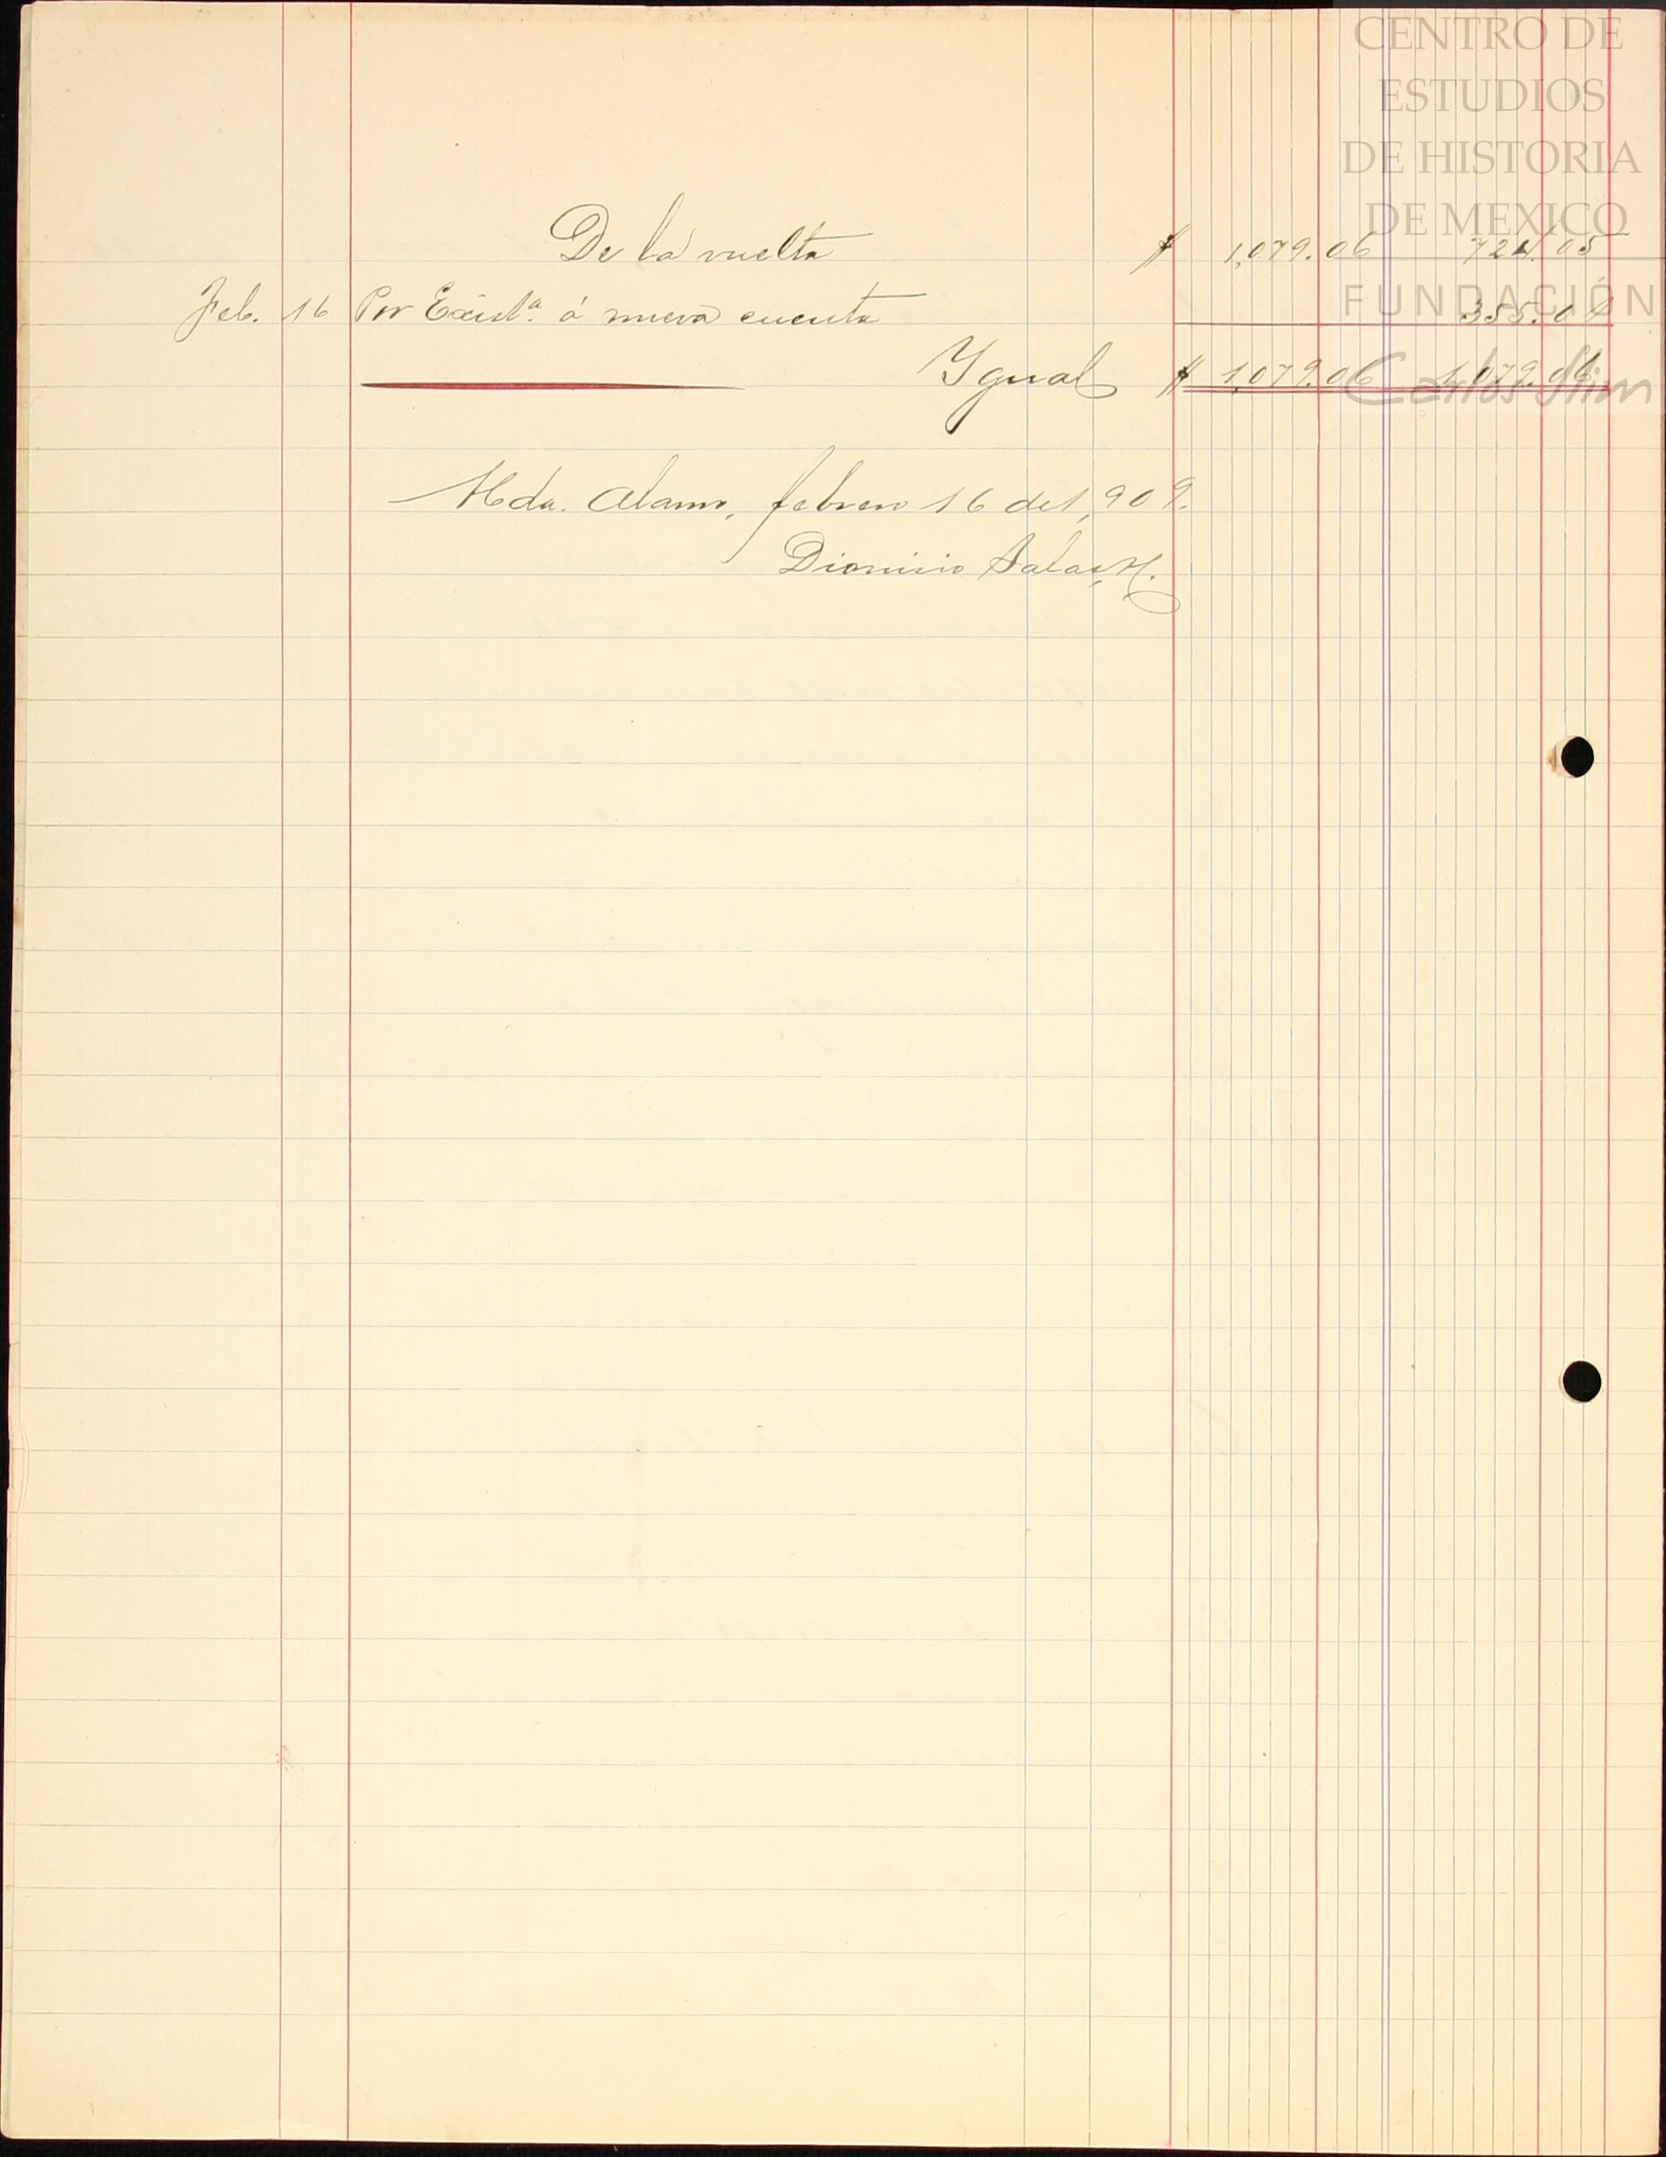 CENTRO DE
ESTUDIOS
DE HISTORIA
DE MEXICO
FUNDACIÓN
Carlos Slim
De la vuelta $ 1,079.06 724.05
Feb. 16 Por Existª á nueva cuenta 355.01
Ygual $ 1,079.06 1,079.06
Hda. Alamo, febrero 16 de 1,909.
Dionicio Salas H.